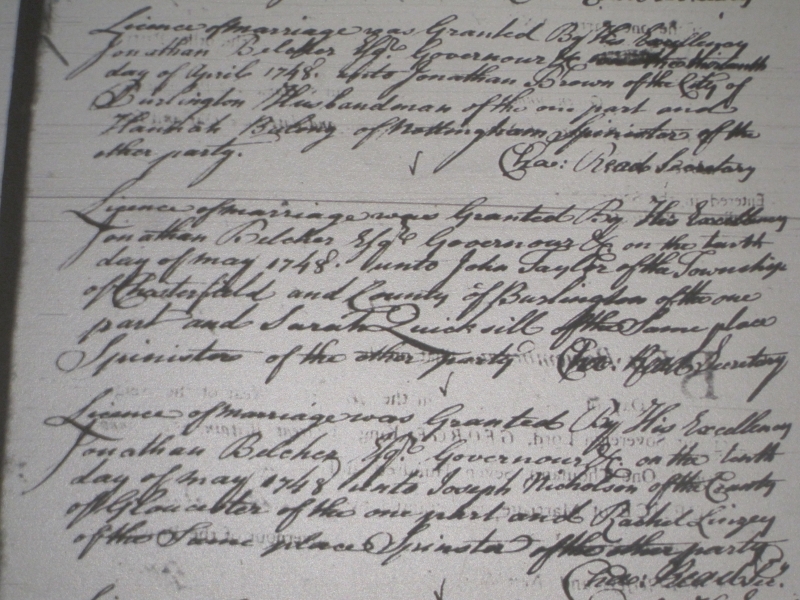 Licence of marriage was Granted By His Excellency
Jonathan Belcher Esqr. Governour &c on the thirteenth
day of April 1748. unto Jonathan Brown of the City of
Burlington Husbandman of the one part and
Hannah of Nottingham Spinister of the
other party. Cha: Read Secretary
Licence of marriage was Granted By His Excellency
Jonathan Belcher Esqr Governour &c on the tenth
day of may 1748. unto John Taylor of the Township
of Chesterfield and County of Burlington of the one
part and Sarah Quicksill of the Same place
Spinister of the other party Cha. Read Secretary
Licence of marriage was Granted By His Excellency
Jonathan Belcher Esqr Governour &c on the tenth
day of may 1748 unto Joseph Nicholson of the County
of Gloucester of the one part and Rachel Linzey
of the Same place Spinster of the other party
Cha: Read Sec.